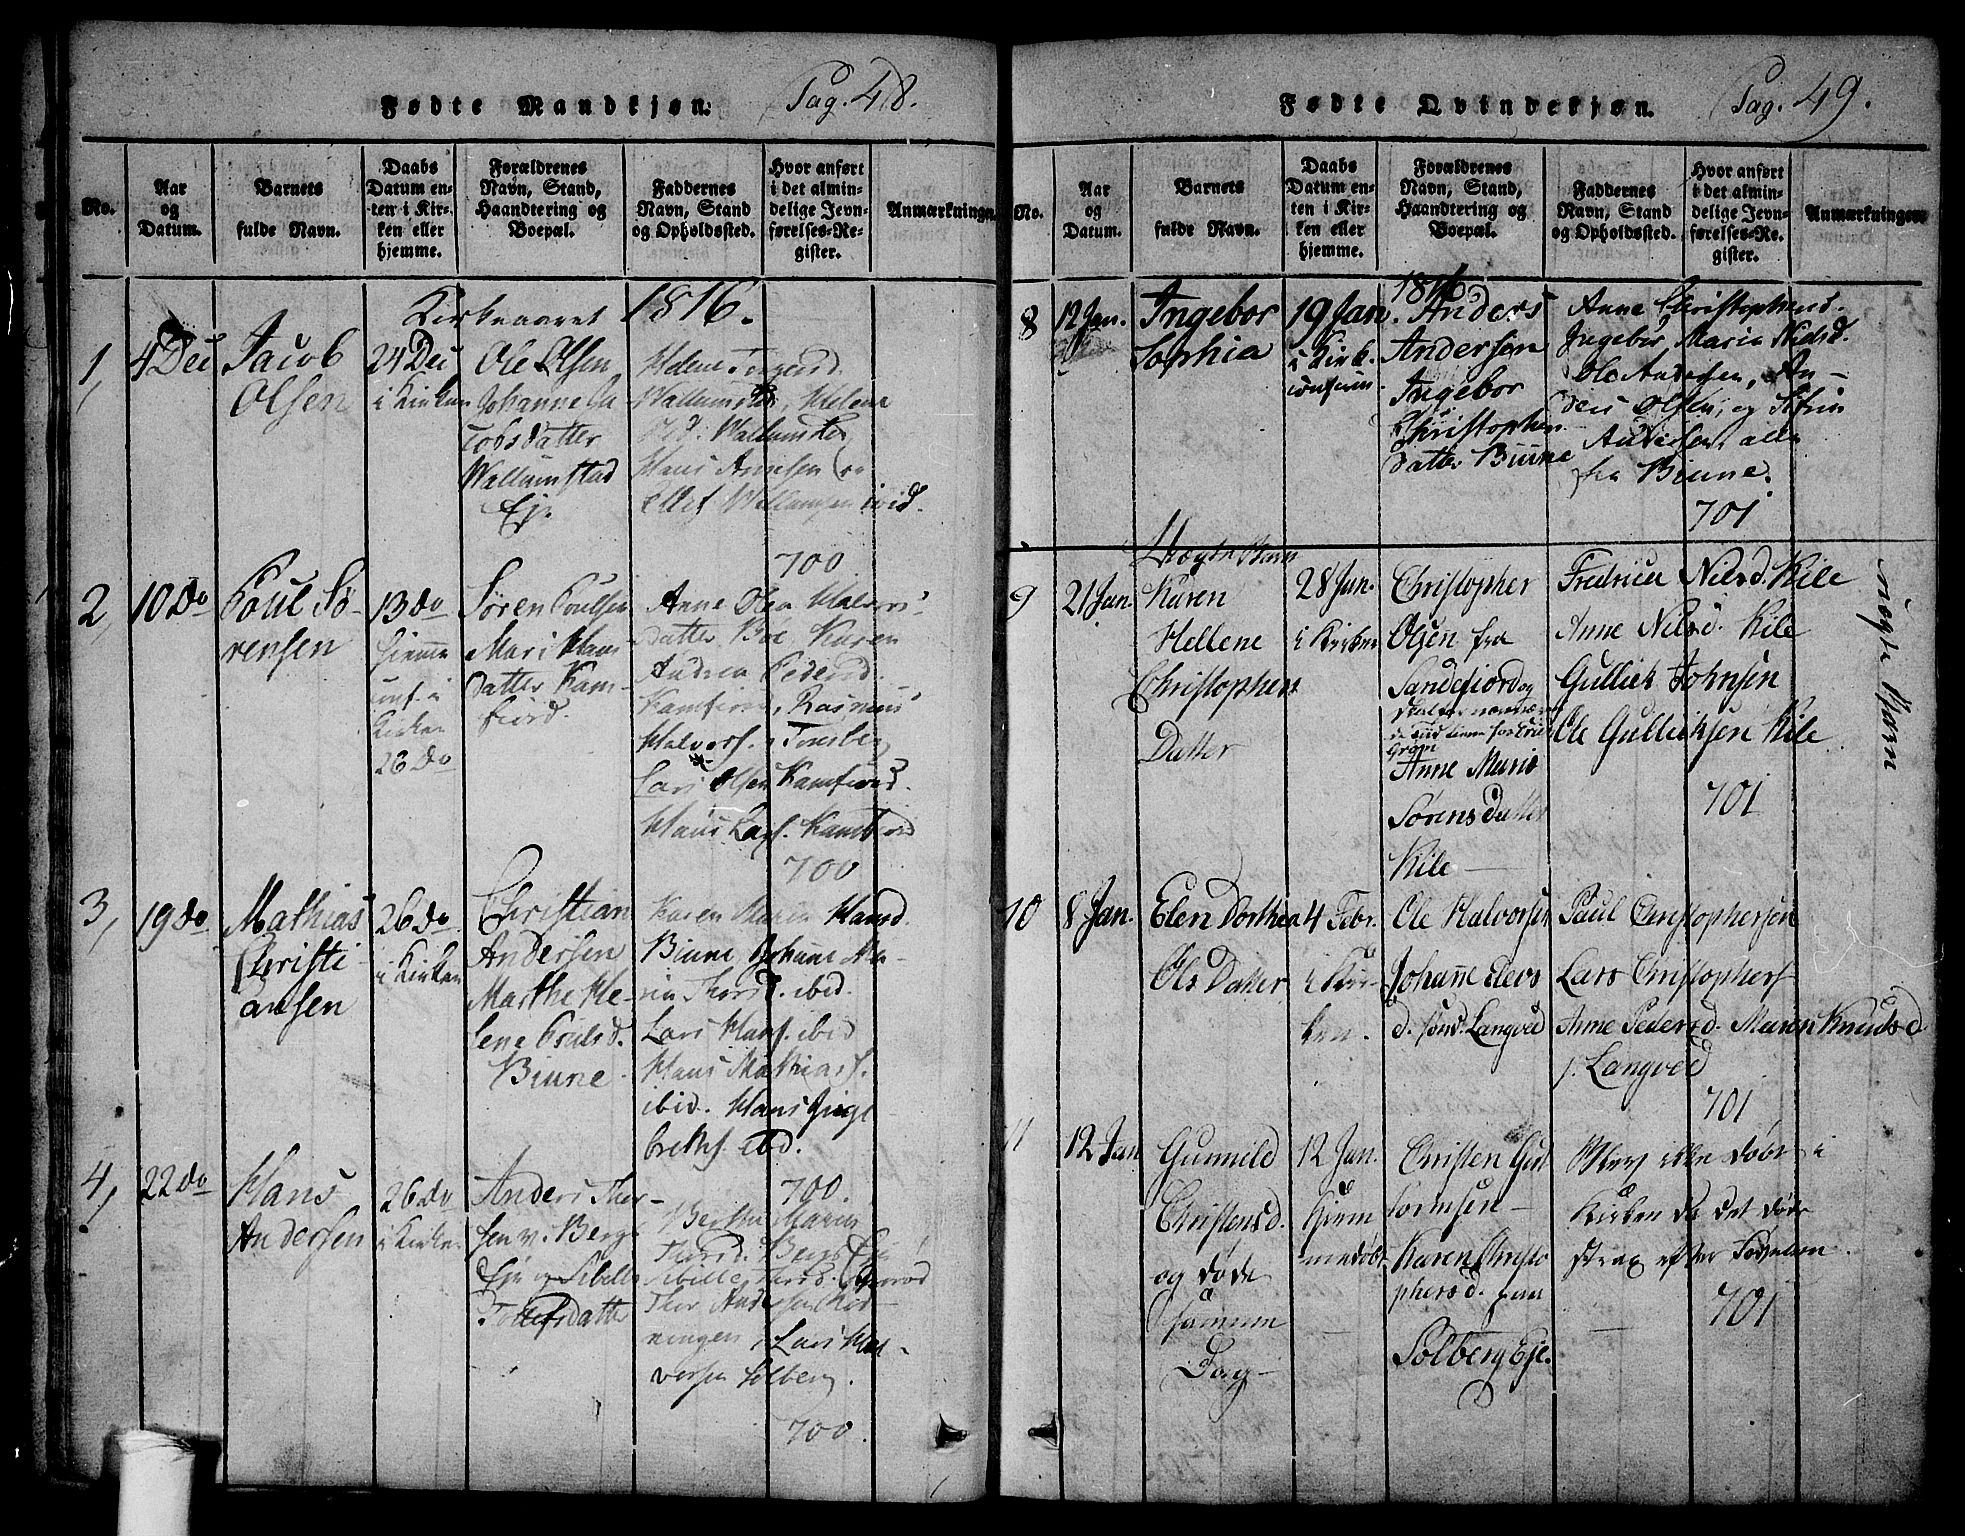 Fødte Mandkjøn. Pag. 48.
No.
Aar
og
Datum.
Barnets
fulde Navn.
Daabs
Datum en-
ten i Kir-
ken eller
hjemme.
Forældrenes
Navn, Stand,
Haandtering og
Boepæl.
Faddernes
Navn, Stand
og Opholdssted.
Hvor anført
i det almin-
delige Jevn-
førelses-Re-
gister.
Anmærkninger
Kirkeaaret 1816.
1,
4 Dec
Jacob
Olsen
24 Dec
i Kirken
Ole Olsen
Johanne Ja
cobsdatter
Wallumstad
Eje
Helene
Helene
Hans
ibid.
700
2,
10 do
Poul Sø-
rensen
13 do
hjemme
i
Kirken
26 do
Søren Poulsen
Mari Hans
datter Kam-
fiord.
Anne Olea Halvors-
datter Bøe Karen
Andrea Pedersd.
Rasmus
Halvors. Tønsberg
Lars Olsen Kamfiord.
Hans Lars. Kamfiord
700
3,
19 do
Mathias
Christi-
ansen
26 do
i Kirken
Christian
Andersen
Marthe He-
lene
Biune
Karen Marie Hansd.
Biune Johane Ma-
ria Thorsd. ibid.
Lars Hans. ibid
Hans Mathias.
ibid. Hans Inge
brets. ibid.
700.
4,
22 do
Hans
Andersen
26 do
i Kirken
Anders Thor-
sen v. Bergs
Eje og Sibille
Berthe Maria
Thorsd. Bergs Eje
Sibille
Thor Andersen
ningen, Lars Hal-
versen Solberg.
700.
Fødte Qvindekjøn. Pag. 49.
No.
Aar
og
Datum.
Barnets
fulde Navn.
Daabs
Datum en-
ten i Kir-
ken eller
hjemme.
Forældrenes
Navn, Stand,
Haandtering og
Boepæl.
Faddernes
Navn, Stand
og Opholdssted.
Hvor anført
i det almin-
delige Jevn-
førelses-Re-
gister.
Anmærkninger
1816
8
12 Jan.
Ingebor
Sophia
19 Jan.
i Kirk.
Anders
Andersen
Ingebor
Christophers
datter Biune
Anne Christophersd.
Ingebor Maria Nielsd.
Ole Andersen, An-
ders Olsen, og
Andersen, alle
fra Biune.
701
Uægte Barn
9
21 Jan.
Karen
Hellene
Christophers
Datter
28 Jan.
i Kirken
Christopher
Olsen fra
Sandefiord og
Anne Marie
Sørensdatter
Kile
Fredrica Nilsd. Kile
Anne Nilsd. Kile
Gullick Johnsen
Ole Gullicksen Kile
701
uægte Barn
10
8 Jan.
Elen Dorthea
Ols Datter
4 Febr.
i Kir-
ken.
Ole Halvorsen
Johanne
d. Langved
Paul Christophersen
Lars Christophers.
Anne Pedersd. Maren Knudsd
f. Langved
701
11
12 Jan
Gunnild
Christensd.
og døde
samme
Dag
12 Jan.
Hiem-
medøbt
Christen Gut
tormsen
Karen Christo
phersd. paa
Solberg Eje.
Blev ikke døbt i
Kirken da det døde
strax efter Fødselen.
701